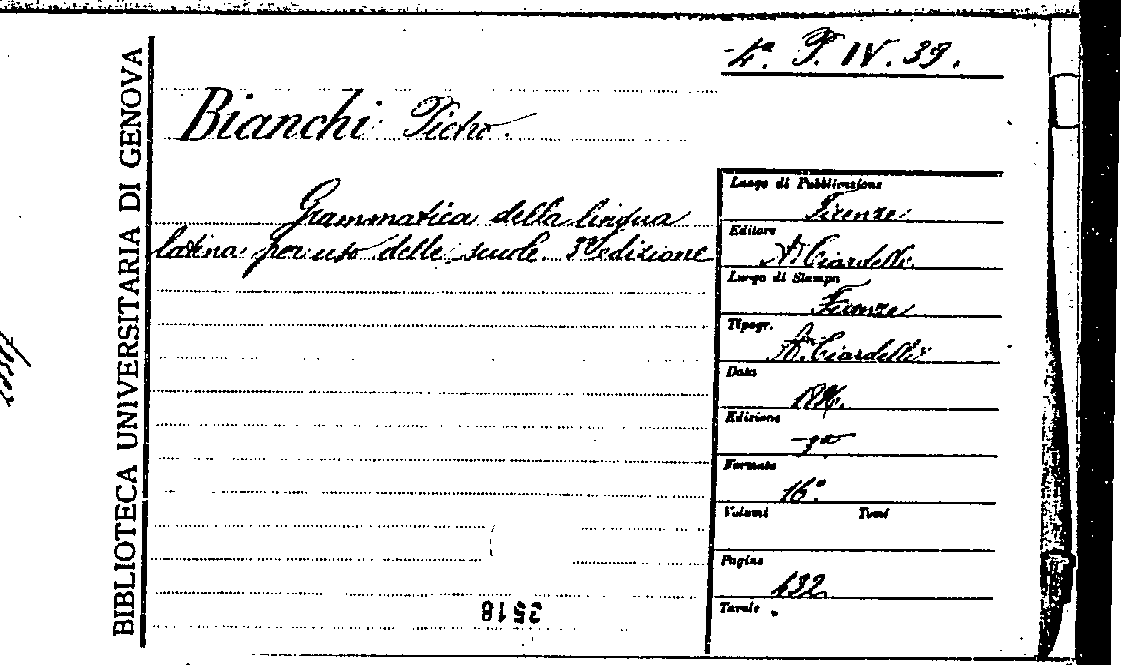 4ª. P. IV. 39.
BIBLIOTECA UNIVERSITARIA DI GENOVA
Bianchi Pietro.
Grammatica della lingua
latina per uso delle scuole. 3ª edizione
Luogo di Pubblicazione
Firenze
Editore
A. Ciardelli
Luogo di Stampa
Firenze
Tipogr.
A. Ciardelli
Data
Edizione
3ª
Formato
16º
Volumi Tomi
Pagine
432
Tavole
2518